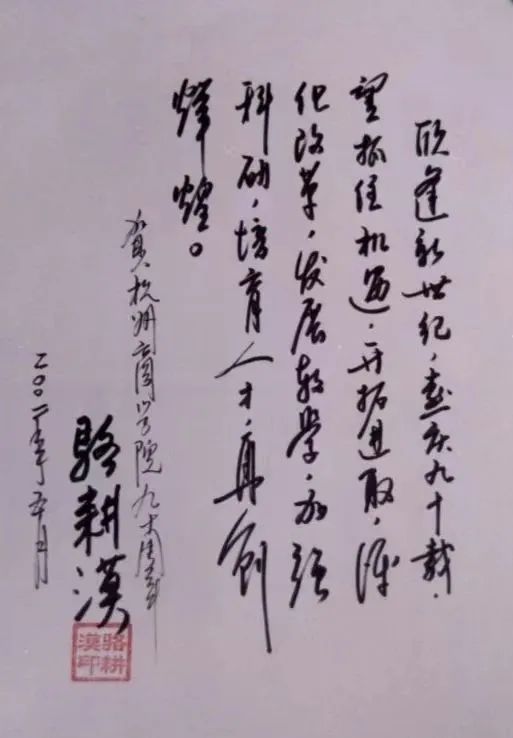 欣逢新世纪，喜庆九十载，
望抓住机遇，开拓进取，深
化改革，发展教学，加强
科研，培育人才，再创
辉煌。
贺杭州商学院九十周年
駱耕漠
二〇〇一年五月
駱耕
漠印